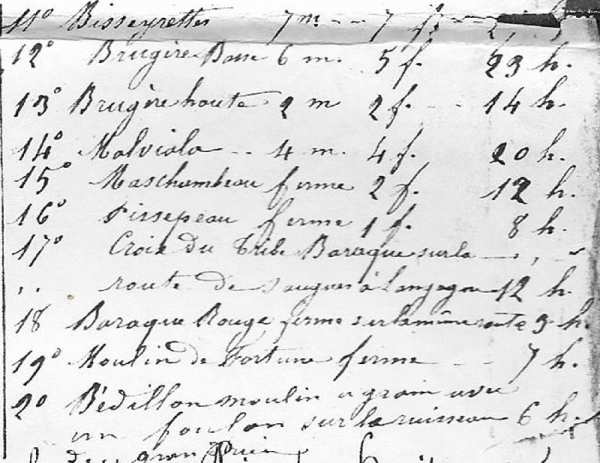 11° Bisseyrettes 7 m. 7 f.
12° Brugère Basse 6 m. 5 f. 23 h.
13° Brugère haute 2 m 2 f. 14 h.
14° Malviala 4 m. 4 f. 20 h.
15° Maschambeau ferme 2 f. 12 h.
16° Pissepeau ferme 1 f. 8 h.
17° Croix du Tribe Baraque sur la
route de Saugues à Langogne 12 h.
18 Baraque Rouge ferme sur la même route 9 h.
19° Moulin de Fortune ferme 7 h.
20 Bédillon moulin a grain avec
un foulon sur la ruisseau 6 h.